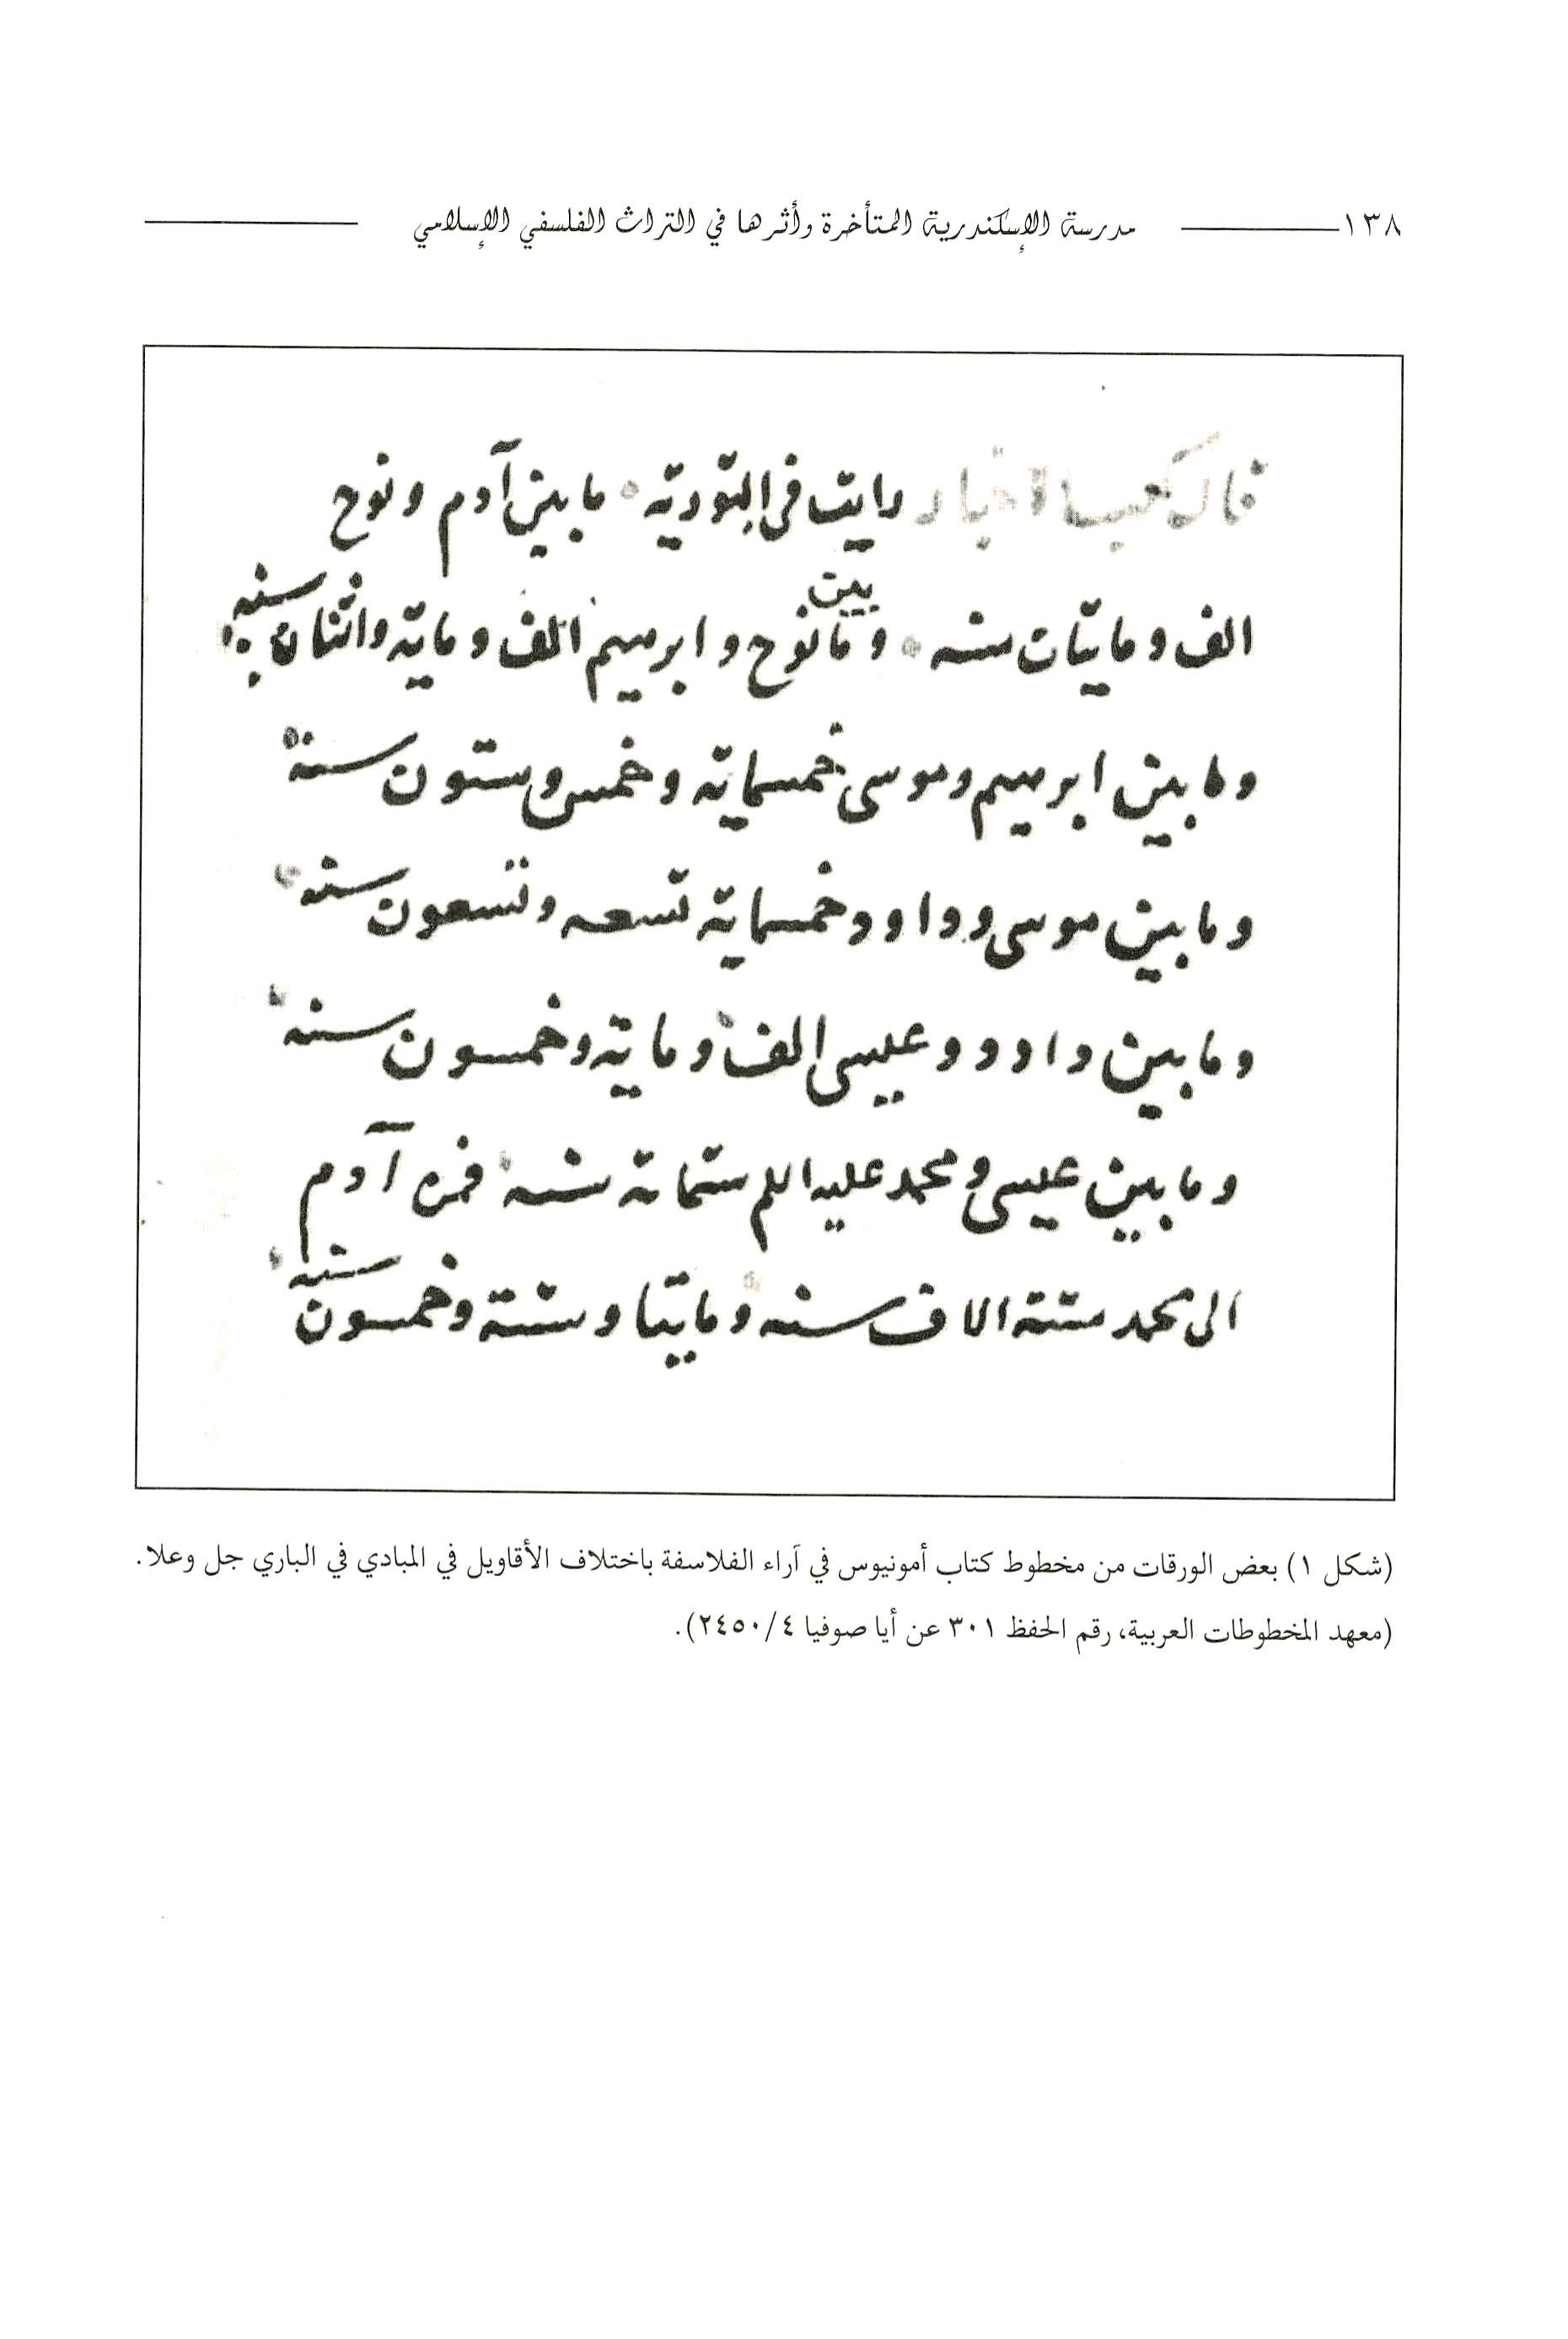 ١٣٨ مدرسة الإسكندرية المتأخرة وأثرها في التراث الفلسفي الإسلامي
قال كعب الاحبار رايت فى التوريه ما بين آدم ونوح
الف ومايتان سنه وما بين نوح وابرهيم الف ومايه واثنان سنه
وما بين ابرهيم وموسى خمسمايه وخمس وستون سنة
وما بين موسى وداود خمسمايه تسعه وتسعون سنه
وما بين داود وعيسى الف ومايه وخمسون سنه
وما بين عيسى ومحمد عليه السلم ستماىه سنه فمن آدم
الى محمد ستة الاف سنه ومايتا وستة وخمسون سنه
(شكل ١) بعض الورقات من مخطوط كتاب أمونيوس في آراء الفلاسفة باختلاف الأقاويل في المبادي في الباري جل وعلا.
(معهد المخطوطات العربية، رقم الحفظ ٣٠١ عن أيا صوفيا ٢٤٥٠/٤).